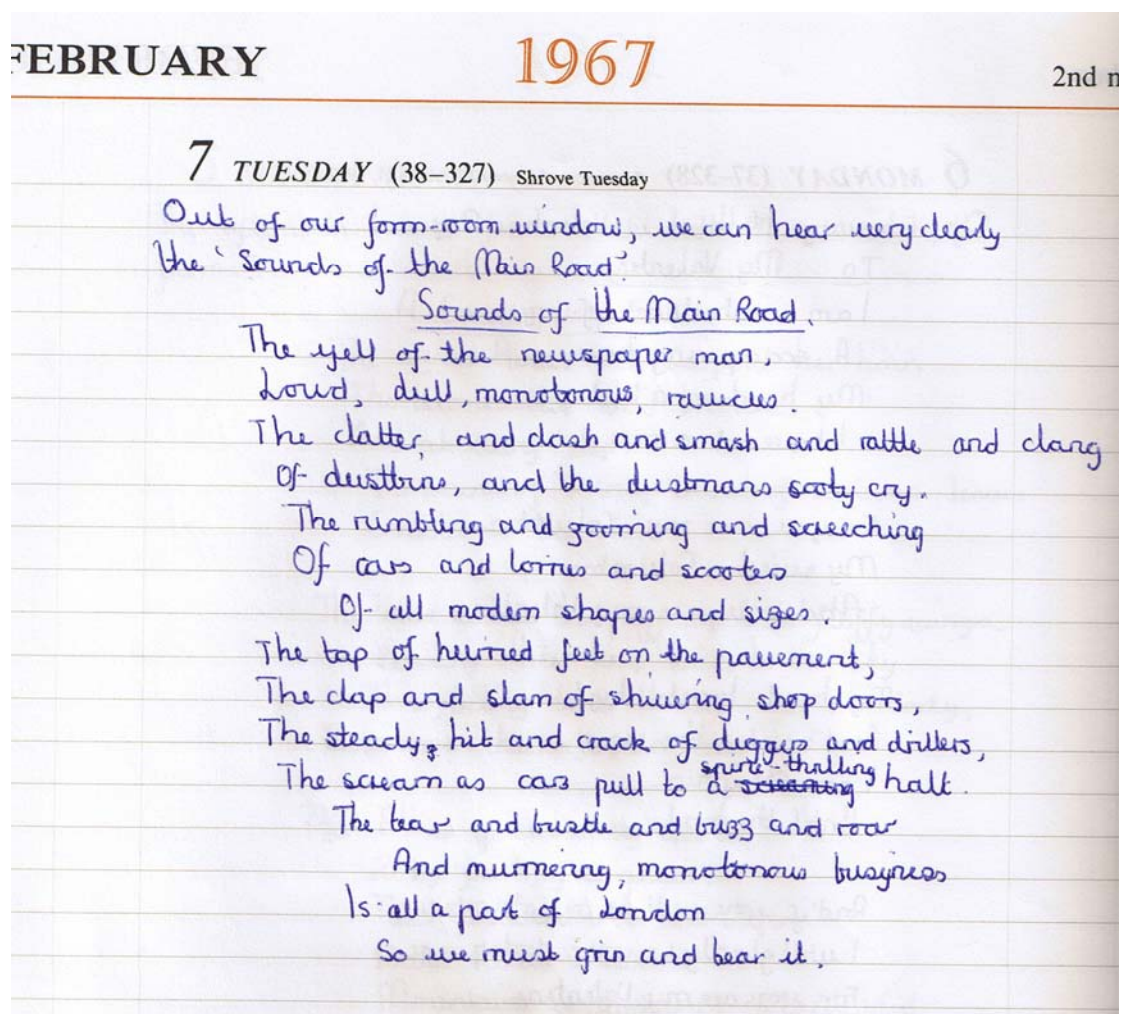 FEBRUARY 1967 2nd m
7 TUESDAY (38–327) Shrove Tuesday
Out of our form-room window, we can hear very clearly
the 'Sounds of the Main Road'.
Sounds of the Main Road.
The yell of the newspaper man,
Loud, dull, monotonous, raucus.
The clatter, and clash and smash and rattle and clang
Of dustbins, and the dustmans sooty cry.
The rumbling and zooming and screeching
Of cars and lorries and scooters
Of all modern shapes and sizes.
The tap of hurried feet on the pavement,
The clap and slam of shivering shop doors,
The steady, hit and crack of diggers and drillers,
The scream as cars pull to a screaming spine-thrilling halt.
The tear and bustle and buzz and roar
And murmering, monotonous busyness
Is all a part of London
So we must grin and bear it.